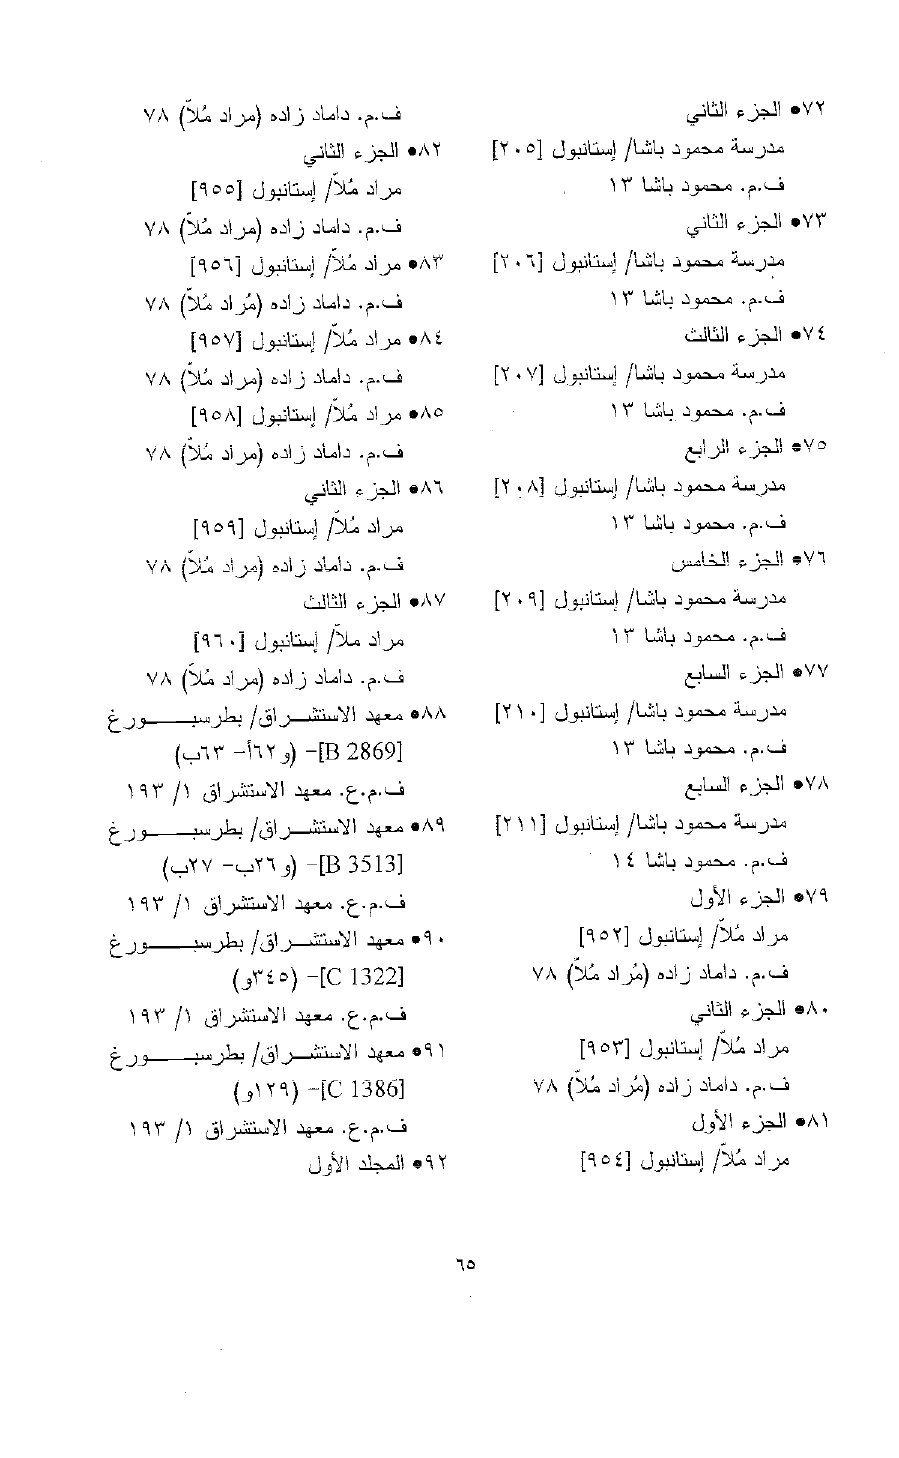 ٧٢• الجزء الثاني
مدرسة محمود باشا/ إستانبول [٢٠٥]
ف.م. محمود باشا ١٣
٧٣• الجزء الثاني
مدرسة محمود باشا/ إستانبول [٢٠٦]
ف.م. محمود باشا ١٣
٧٤• الجزء الثالث
مدرسة محمود باشا/ إستانبول [٢٠٧]
ف.م. محمود باشا ١٣
٧٥• الجزء الرابع
مدرسة محمود باشا/ إستانبول [٢٠٨]
ف.م. محمود باشا ١٣
٧٦• الجزء الخامس
مدرسة محمود باشا/ إستانبول [٢٠٩]
ف.م. محمود باشا ١٣
٧٧• الجزء السابع
مدرسة محمود باشا/ إستانبول [٢١٠]
ف.م. محمود باشا ١٣
٧٨• الجزء السابع
مدرسة محمود باشا/ إستانبول [٢١١]
ف.م. محمود باشا ١٤
٧٩• الجزء الأول
مراد مُلاّ/ إستانبول [٩٥٢]
ف.م. داماد زاده (مُراد مُلاّ) ٧٨
٨٠• الجزء الثاني
مراد مُلاّ/ إستانبول [٩٥٣]
ف.م. داماد زاده (مُراد مُلاّ) ٧٨
٨١• الجزء الأول
مراد مُلاّ/ إستانبول [٩٥٤]
ف.م. داماد زاده (مراد مُلاّ) ٧٨
٨٢• الجزء الثاني
مراد مُلاّ/ إستانبول [٩٥٥]
ف.م. داماد زاده (مراد مُلاّ) ٧٨
٨٣• مراد مُلاّ/ إستانبول [٩٥٦]
ف.م. داماد زاده (مُراد مُلاّ) ٧٨
٨٤• مراد مُلاّ/ إستانبول [٩٥٧]
ف.م. داماد زاده (مراد مُلاّ) ٧٨
٨٥• مراد مُلاّ/ إستانبول [٩٥٨]
ف.م. داماد زاده (مراد مُلاّ) ٧٨
٨٦• الجزء الثاني
مراد مُلاّ/ إستانبول [٩٥٩]
ف.م. داماد زاده (مراد مُلاّ) ٧٨
٨٧• الجزء الثالث
مراد ملاّ/ إستانبول [٩٦٠]
ف.م. داماد زاده (مراد مُلاّ) ٧٨
٨٨• معهد الاستشراق/ بطرسبورغ
[B 2869]- (و٦٢أ- ٦٣ب)
ف.م.ع. معهد الاستشراق ١/ ١٩٣
٨٩• معهد الاستشراق/ بطرسبورغ
[B 3513]- (و٢٦ب- ٢٧ب)
ف.م.ع. معهد الاستشراق ١/ ١٩٣
٩٠• معهد الاستشراق/ بطرسبورغ
[C 1322]- (٣٤٥و)
ف.م.ع. معهد الاستشراق ١/ ١٩٣
٩١• معهد الاستشراق/ بطرسبورغ
[C 1386]- (١٢٩و)
ف.م.ع. معهد الاستشراق ١/ ١٩٣
٩٢• المجلد الأول
٦٥